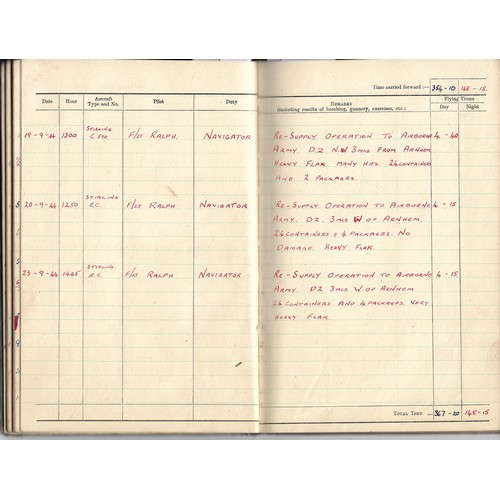 Time carried forward:— 354-10 145-15.
Date Hour Aircraft Type and No. Pilot Duty Remarks (including results of bombing, gunnery, exercises, etc.) Flying Times
Day Night
19-9-44 1300 STIRLING F/LT RALPH. NAVIGATOR RE-SUPPLY OPERATION TO AIRBORNE 4-40
ARMY. DZ N.W 3 MLS FROM ARNHEM
HEAVY FLAK. MANY HITS. 24 CONTAINERS
AND 2 PACKAGES.
20-9-44 1250 STIRLING F/LT RALPH NAVIGATOR RE-SUPPLY OPERATION TO AIRBORNE 4-15
ARMY. DZ. 3 MLS W OF ARNHEM.
24 CONTAINERS + 4 PACKAGES. NO
DAMAGE. HEAVY FLAK.
23-9-44 1445 STIRLING F/LT RALPH NAVIGATOR RE-SUPPLY OPERATION TO AIRBORNE 4-15.
ARMY. DZ 3 MLS W OF ARNHEM
24 CONTAINERS AND 4 PACKAGES. VERY
HEAVY FLAK
TOTAL TIME — 367-20 145-15